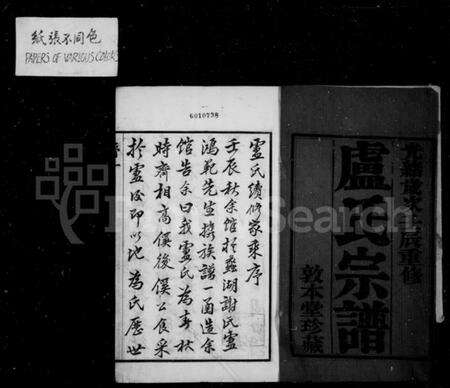 紙張不同色
PAPERS OF VARIOUS COLORS
6010798
盧氏續修家乘序
壬辰秋余館於蠡湖謝氏盧
鴻範先生攜族譜一函造余
館告余曰我盧氏為春秋
時齊相高傒後傒公食采
於盧後即以地為氏歷世
光緒歲次壬辰重修
盧氏宗譜
敦本堂珍藏